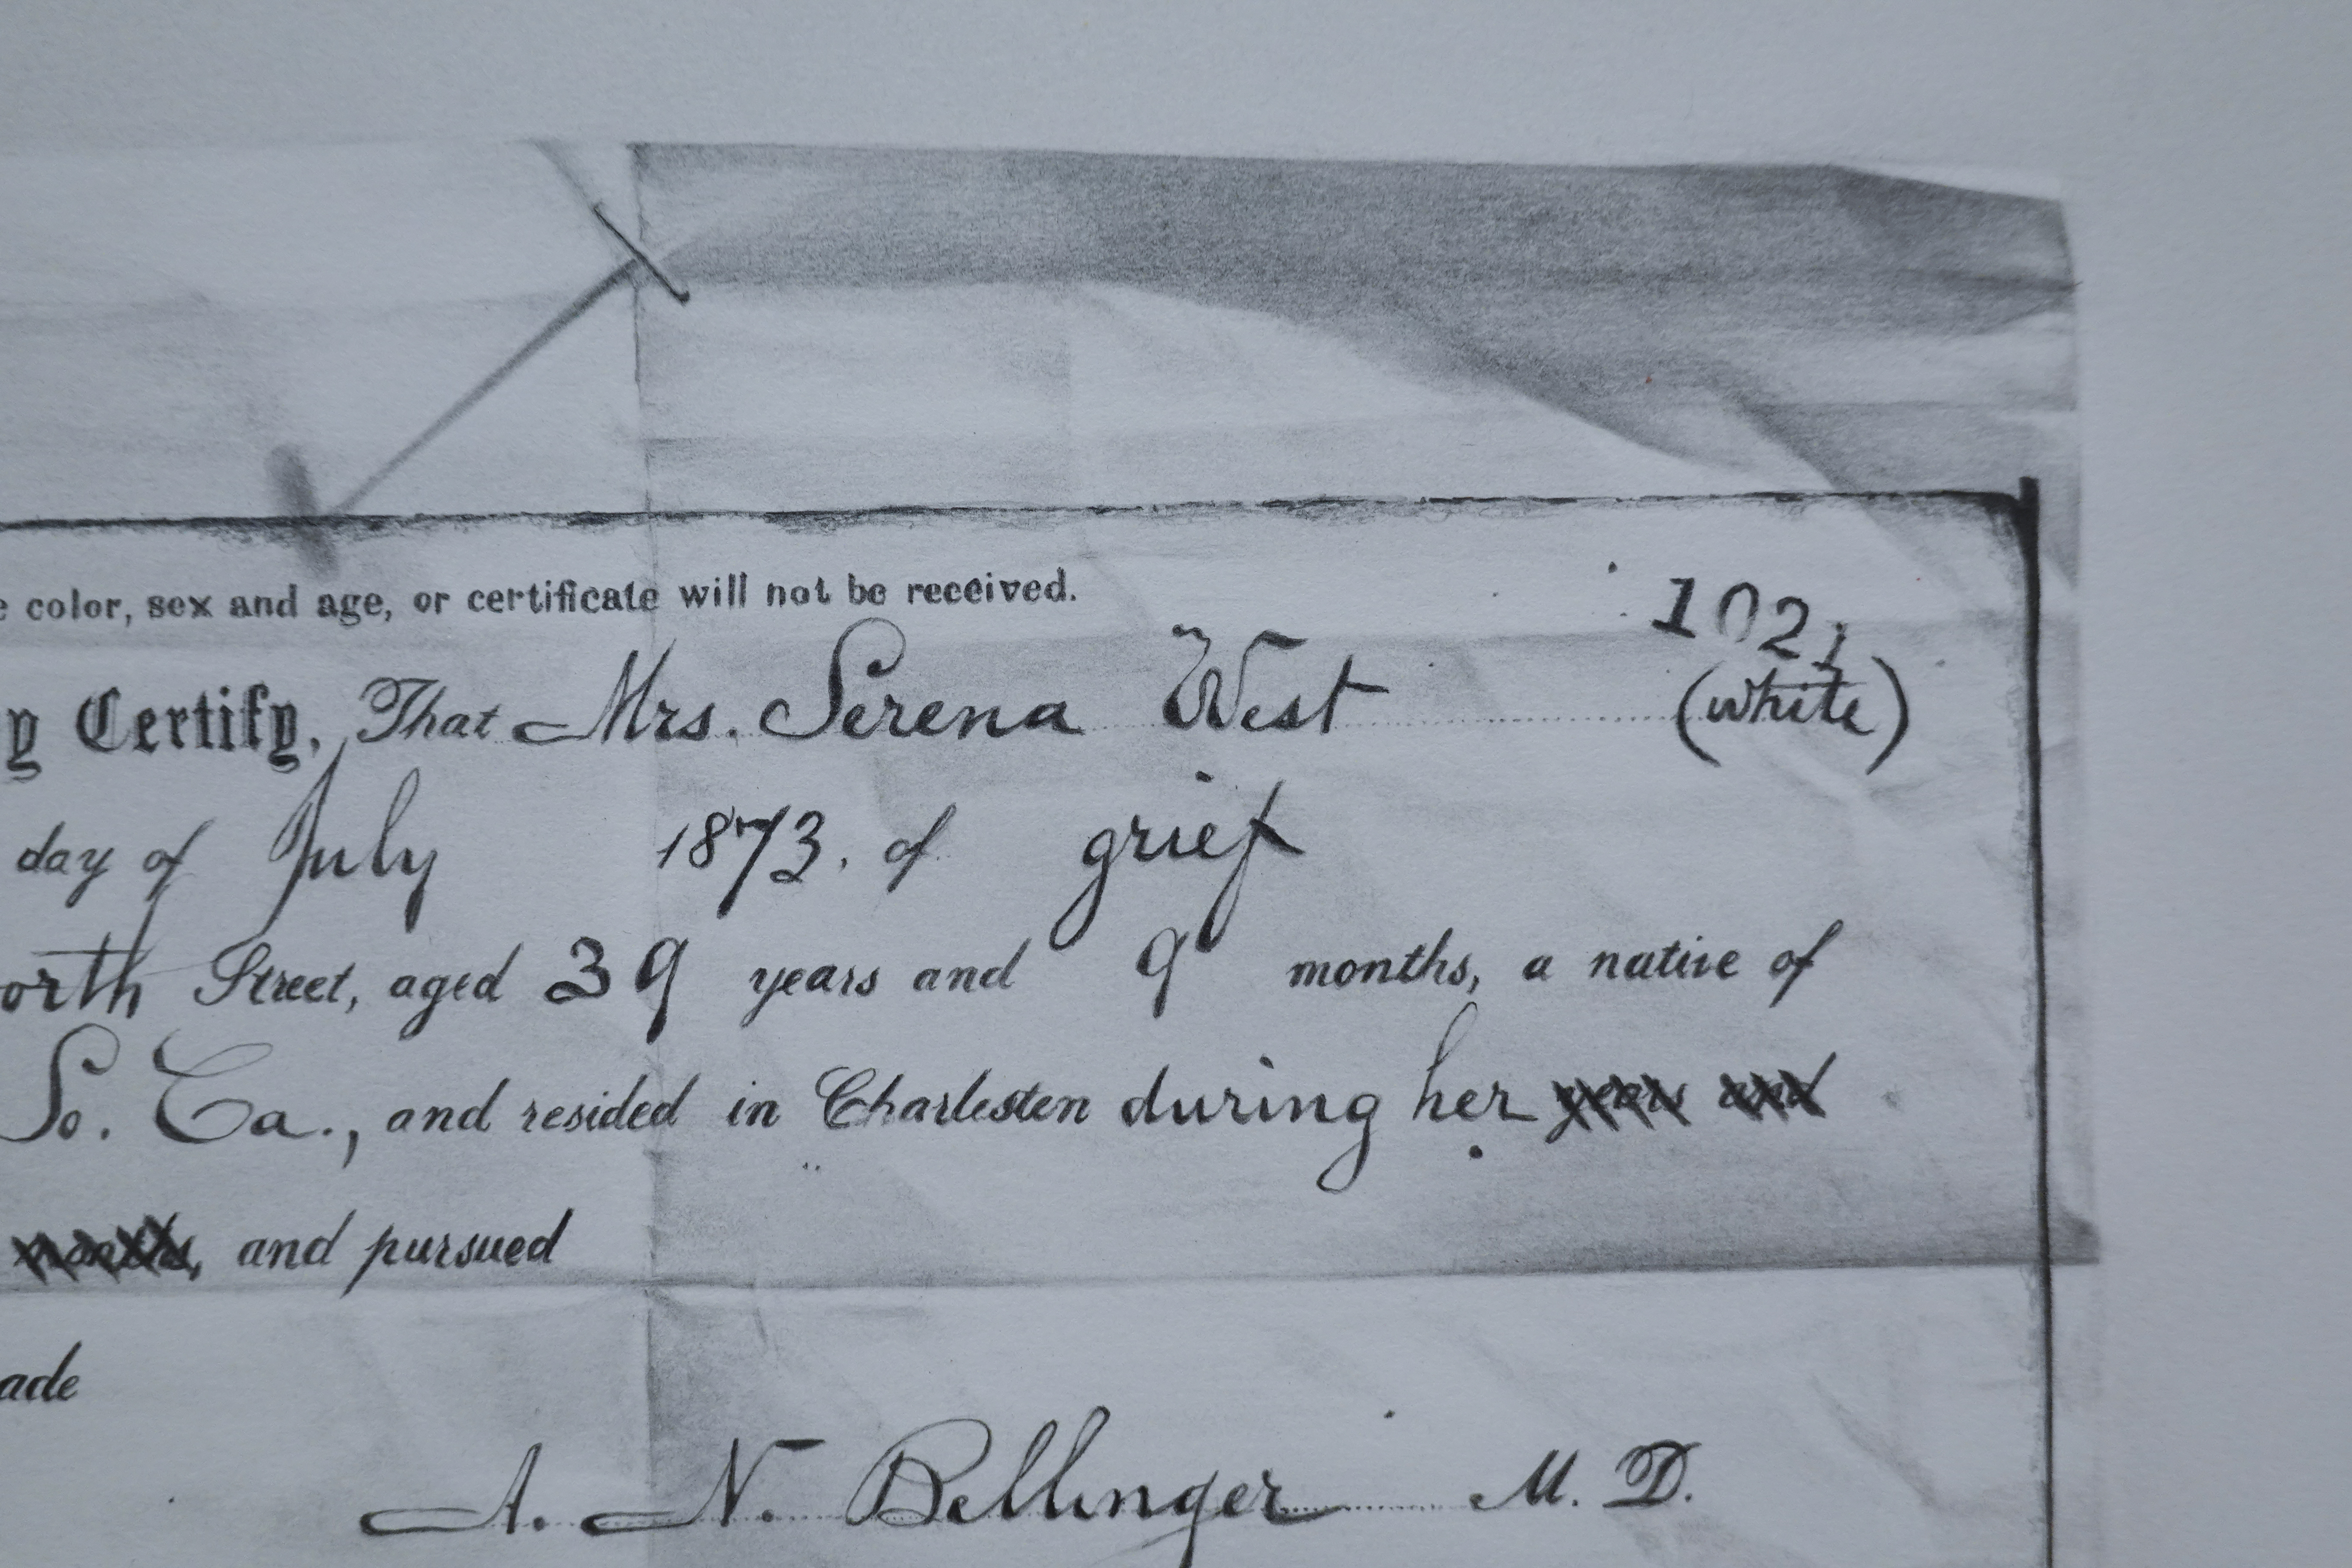 e color, sex and age, or certificate will not be received.
102
y Certify, That Mrs. Serena West (white)
day of July 1873. of grief
orth Street, aged 39 years and 9 months, a native of
So. Ca., and resided in Charlesten during her years and
months, and pursued
ade
A. N. Bellinger M. D.